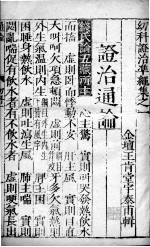 幼科證治準繩集之
證治通論
金壇王肯堂宇泰甫輯
錢氏論五臟所主
心主驚 實則叫哭發熱飲水
而搐 虛則困而悸動不安 肝主風 實則目直
大叫呵欠項急頓悶 虛則咬牙多欠氣熱則
外生氣溫則內生 脾主困 實則
困睡身熱飲水 虛則吐瀉生風 肺主喘 實則
悶亂喘促有飲水者有不飲水者 虛則哽氣長出